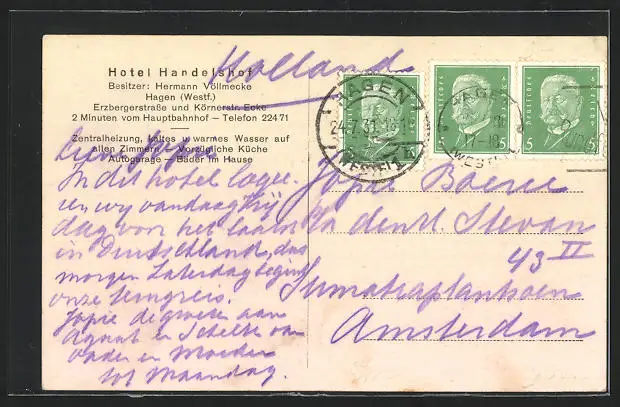 Hotel Handelshof
Besitzer: Hermann Vollmecke
Hagen (Westf.)
Erzbergerstraße und Körnerstr. Ecke
2 Minuten vom Hauptbahnhof — Telefon 22471
Zentralheizung, kaltes u. warmes Wasser auf
allen Zimmern — Vorzügliche Küche
Autogarage — Bäder im Hause
Holland
In dit hotel logee
ren wy vandaag Vrij
dag voor het laatst
in Duitschland, das
morgen Zaterdag begint
onze terugreis.
Jopie de groeten aan
en Schelte van
Vader en Moeder
tot Maandag.
Jopie Boeree
p/a den H. Stevan
43 II
Sumatraplantsoen
Amsterdam
HAGEN
24.7.31
(WESTF.) 1
DEUTSCHES REICH
5
HAGEN
17-18
(WESTF.)
5
5